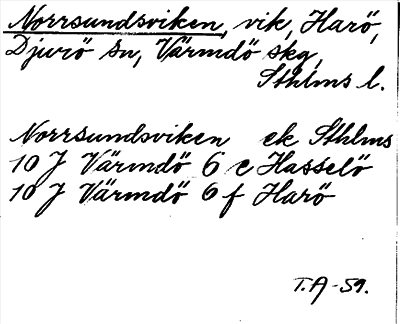 Norrsundsviken, vik, Harö,
Djurö sn, Värmdö skg,
Sthlms l.
Norrsundsviken ek Sthlms
10 J Värmdö 6 e Hasselö
10 J Värmdö 6 f Harö
T.A -59.